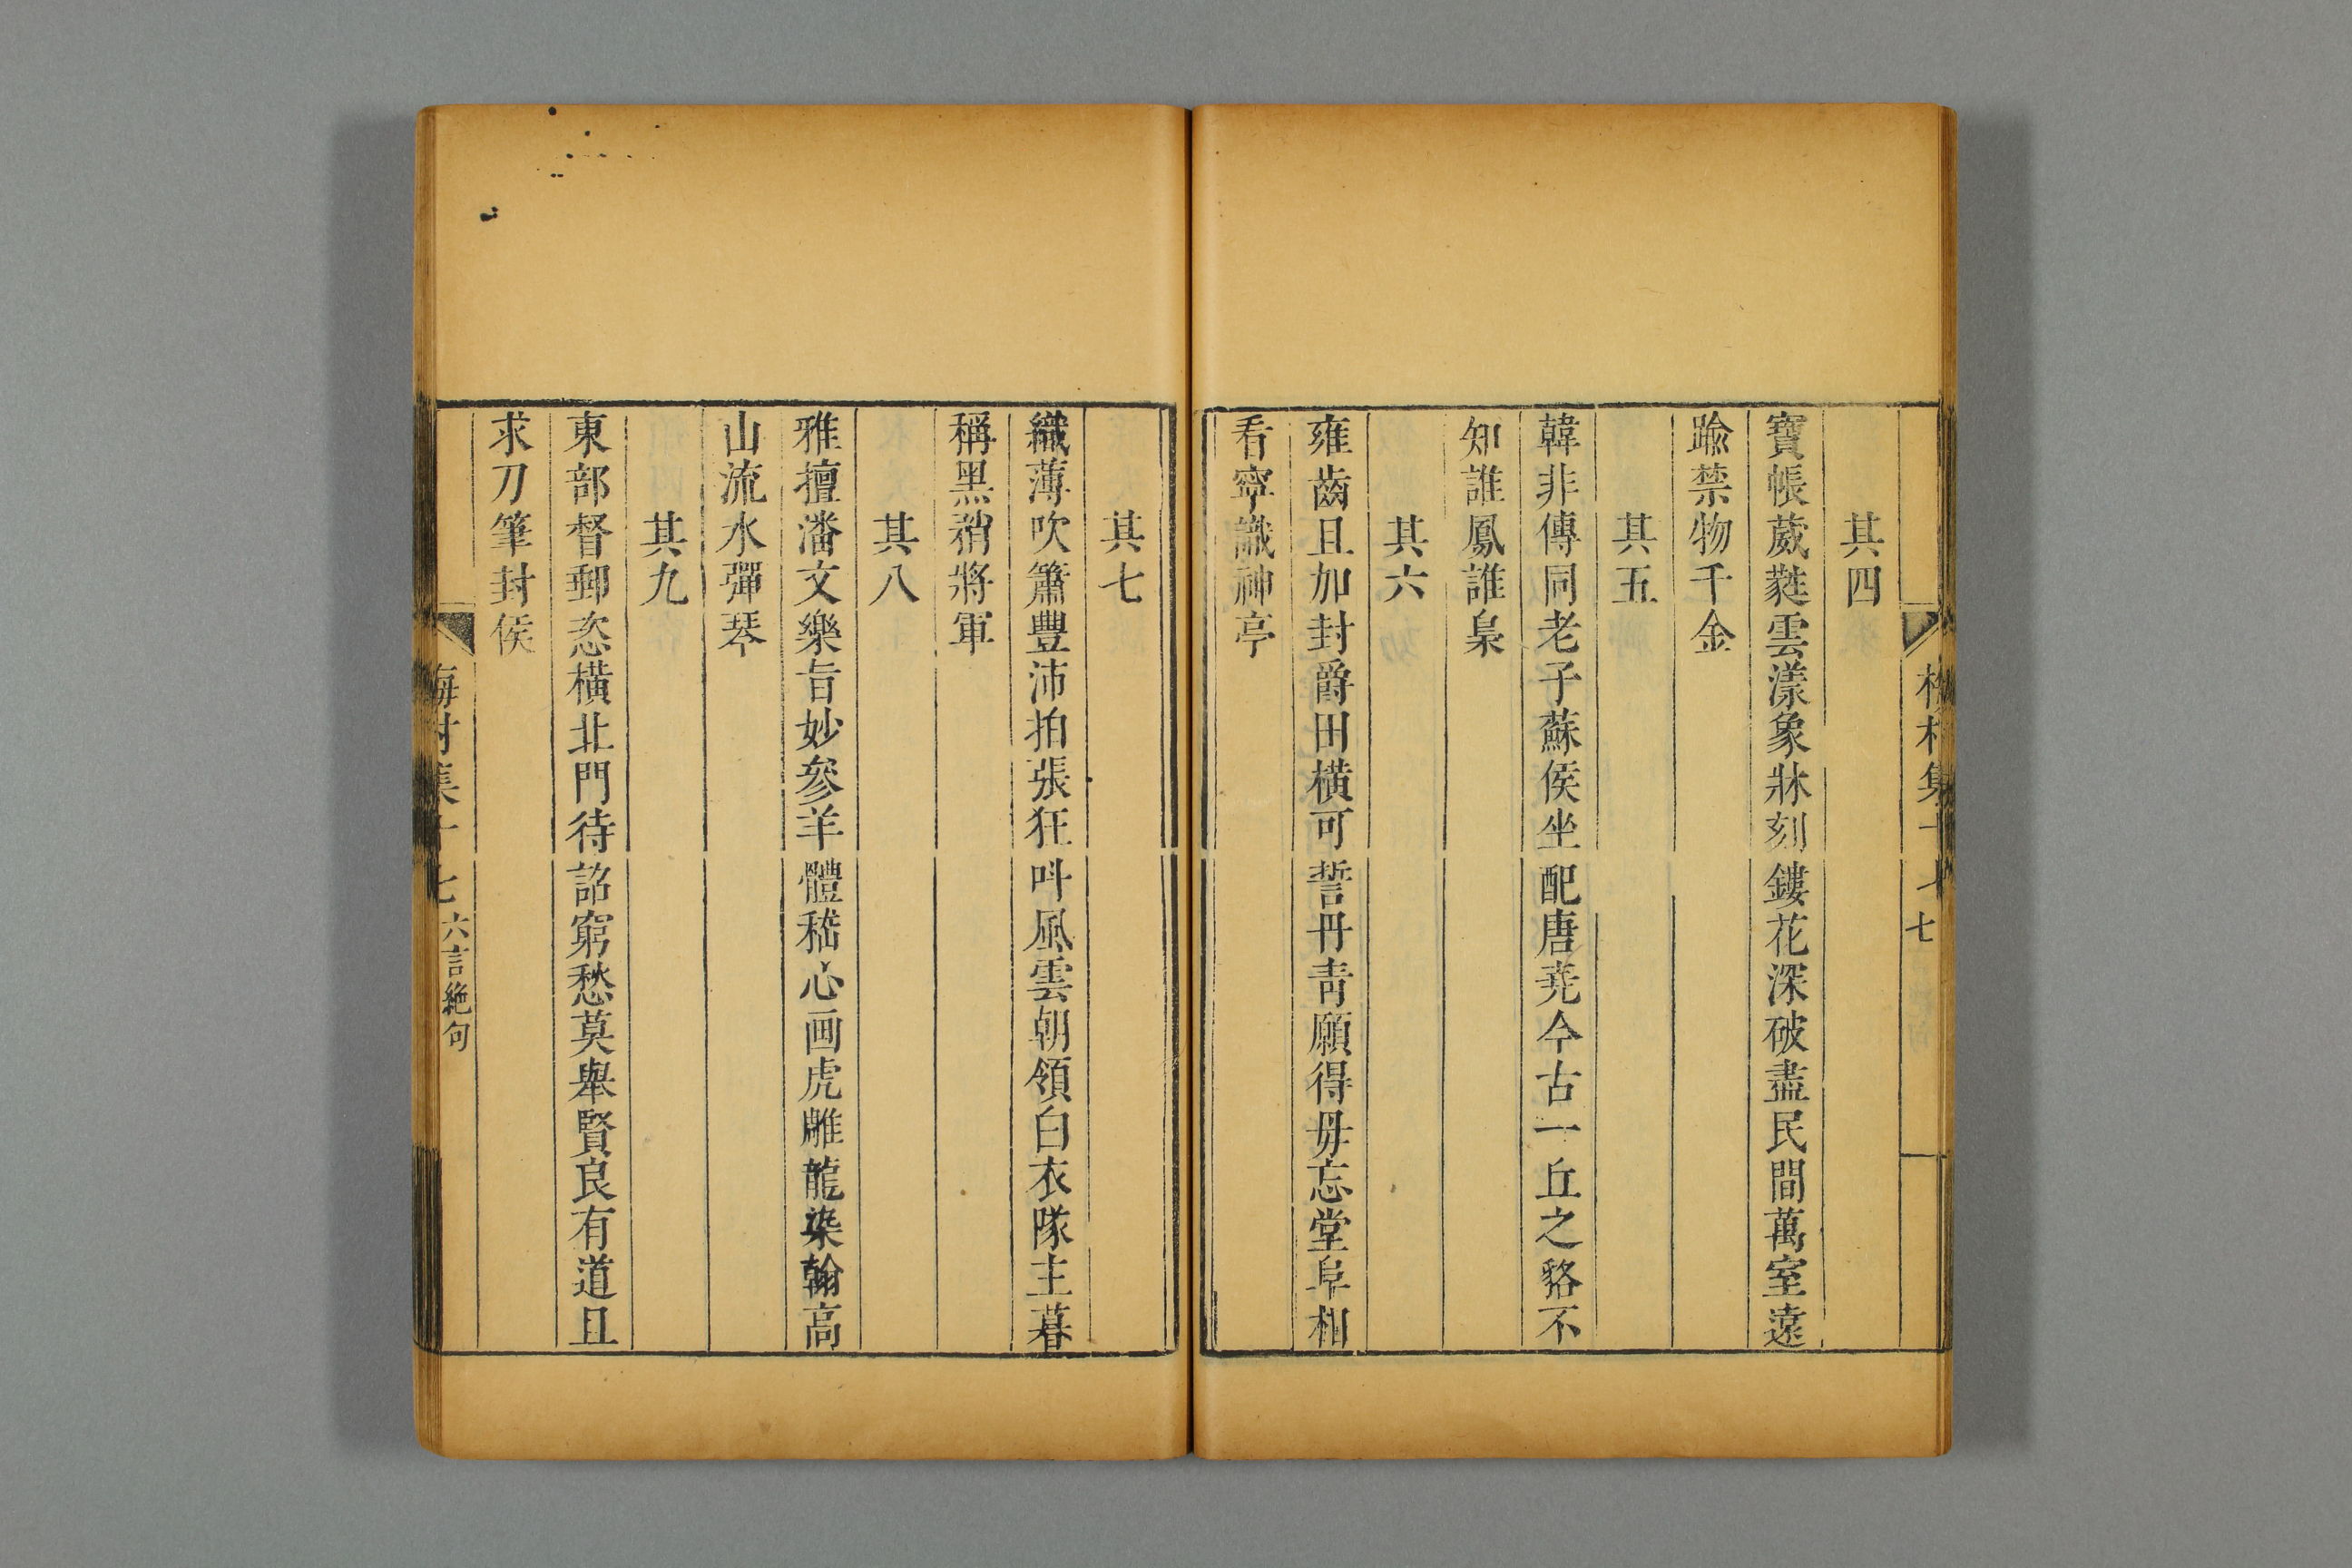 其四
寶帳葳蕤雲漾象牀刻鏤花深破盡民間萬室遠
踰禁物千金
其五
韓非傳同老子蘇侯坐配唐尭今古一丘之貉不
知誰鳳誰梟
其六
雍齒且加封爵田橫可誓丹青願得毋忘堂阜相
看寧識神亭
其七
織薄吹簫豐沛拍張狂呌風雲朝領白衣隊主暮
稱黑矟將軍
其八
雅擅潘文樂旨妙參羊體嵇心画虎雕龍染翰高
山流水彈琴
其九
東部督郵恣橫北門待詔窮愁莫舉賢良有道且
求刀筆封侯
梅村集十七 六言絶句
梅村集十七 七